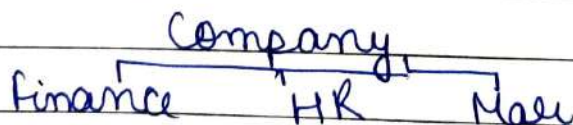 Company
Finance HR